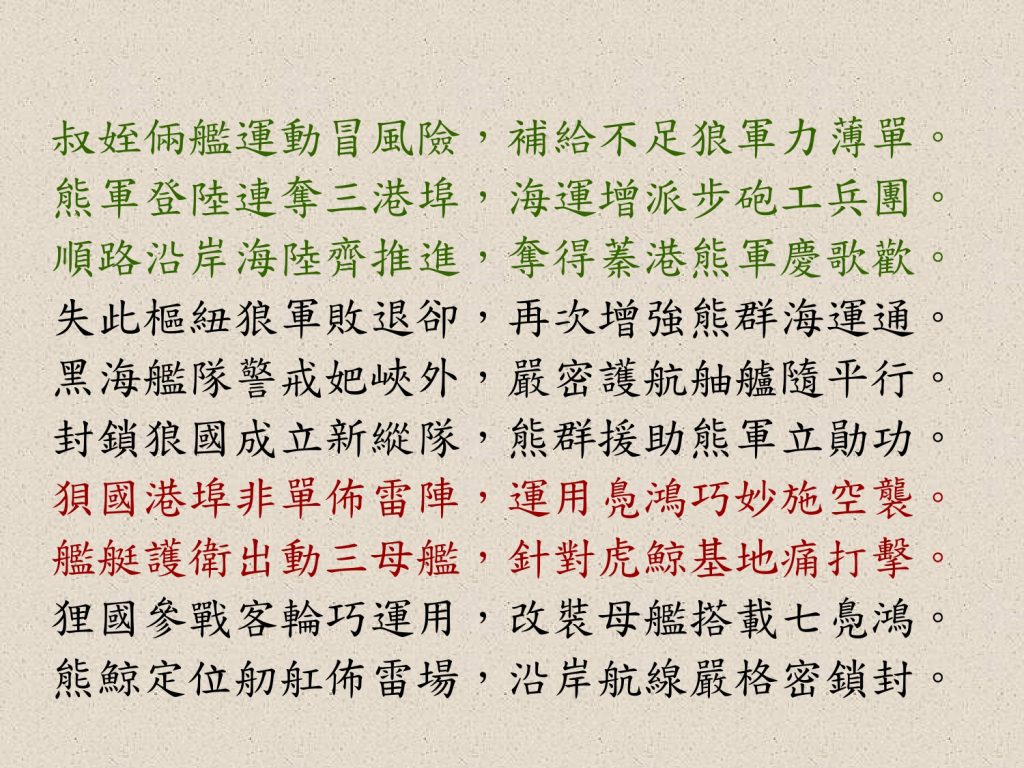 叔姪倆艦運動冒風險，補給不足狼軍力薄單。
熊軍登陸連奪三港埠，海運增派步砲工兵團。
順路沿岸海陸齊推進，奪得蓁港熊軍慶歌歡。
失此樞紐狼軍敗退卻，再次增強熊群海運通。
黑海艦隊警戒妑峽外，嚴密護航舳艫隨平行。
封鎖狼國成立新縱隊，熊群援助熊軍立勛功。
狽國港埠非單佈雷陣，運用鳧鴻巧妙施空襲。
艦艇護衛出動三母艦，針對虎鯨基地痛打擊。
狸國參戰客輪巧運用，改裝母艦搭載七鳧鴻。
熊鯨定位舠舡佈雷場，沿岸航線嚴格密鎖封。